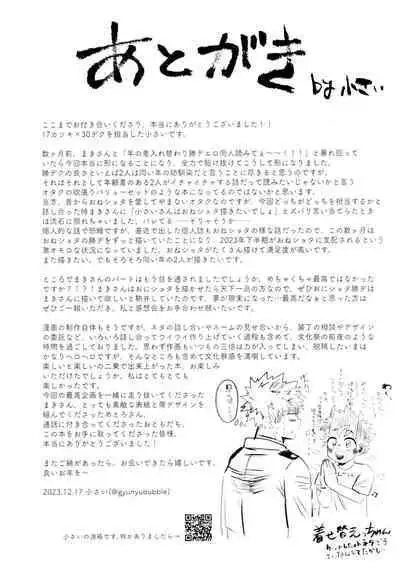 あとがき
by 小さい
ここまでお付き合いくださり、本当にありがとうございました!!
17カツキ×30デクを担当した小さいです。
数ヶ月前、まきさんと「年の差入れ替わり勝デエロ同人読みてぇ〜〜!!!」と暴れ回って
いたら今回本当に形になることになり、全力で駆け抜けてこうして形になりました。
勝デクの良さといえば2人は同い年の幼馴染だと言うことに尽きると思うのですが、
それはそれとして年齢差のある2人がイチャイチャする話だって読みたいじゃないかと言う
オタクの欲張りバリューセットのような本になってるのではないかと思います。
当方、昔からおねショタを愛してやまないオタクなのですが、今回どっちがどっちを担当するかと
話し合った時まきさんに「小さいさんはおねショタ描きたいでしょ」とズバリ言い当てられたとき
は流石に照れちゃいました。バレてる……そりゃそうか…
個人的な話で恐縮ですが、最近で出した個人誌もおねショタの様な話だったので、この数ヶ月は
おねショタの勝デクをずっと描いていたことになり、2023年下半期がおねショタに支配されるという
激キモな状況になっていました。おねショタがたくさん描けて満足度が高いです。
また描きたい。でもそろそろ同い年の2人が描きたいです。
ところでまきさんのパートはもう目を通されましたでしょうか。めちゃくちゃ最高ではなかった
ですか?!!!まきさんはおにショタを描かせたら天下一品の方なので、ぜひおにショタ勝デは
まきさんに描いて欲しいと熱弁していたのです。夢が現実になった…最高だなぁと思った方は
ぜひご一報いただき、私と感想会をお手合わせ願いたいです。
漫画の制作自体もそうですが、ネタの話し合いやネームの見せ合いから、装丁の相談やデザイン
の委託など、いろいろ話し合ってワイワイ作り上げていく過程も含めて、文化祭の前夜のような
時間を過ごしておりました。思わず作画もいつもの三倍は力が入ってしまい、脱稿したいまは
かなりヘロヘロですが、そんなところも含めて文化祭感を満喫しています。
楽しいと楽しいの二乗で出来上がった本、お楽しみ
いただけでしょうか。私はとてもとても
楽しかったです。
今回の最高企画を一緒に走り抜いてくださった
まきさん、とっても素敵な表紙と帯デザインを
組んでくださっためとろさん、
通話に付き合ってくださったおともだち、
この本をお手に取ってくださった皆様、
本当にありがとうございました!
またご縁があったら、お会いできたら嬉しいです。
良いお年を〜
2023.12.17 小さい(@gyunyububble)
小さいの連絡です。何かありましたら→
着せ替え